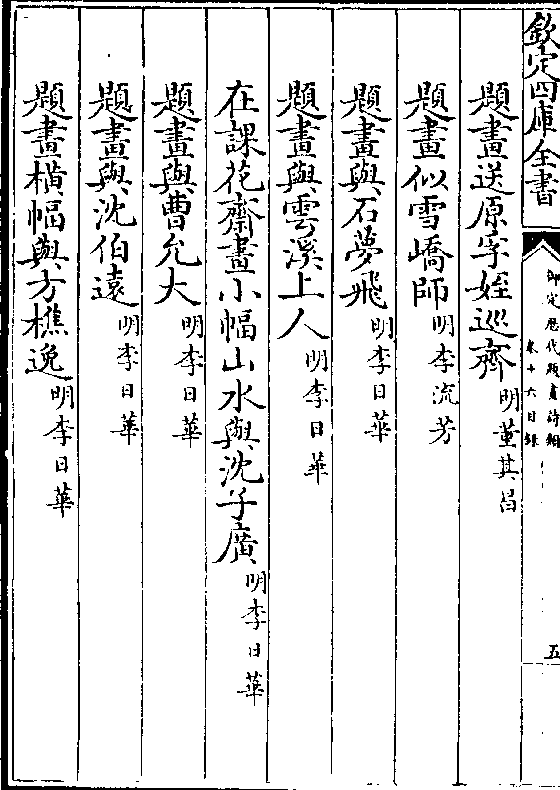 欽定四庫全書
御定歷代題畫詩類
卷十六目錄
五
題畫送原孚姪巡齊明董其昌
題畫似雪嶠師明李流芳
題畫與石夢飛明李日華
題畫與雲溪上人明李日華
在課花齋畫小幅山水與沈子廣明李日華
題畫與曹允大明李日華
題畫與沈伯遠明李日華
題畫橫幅與方樵逸明李日華